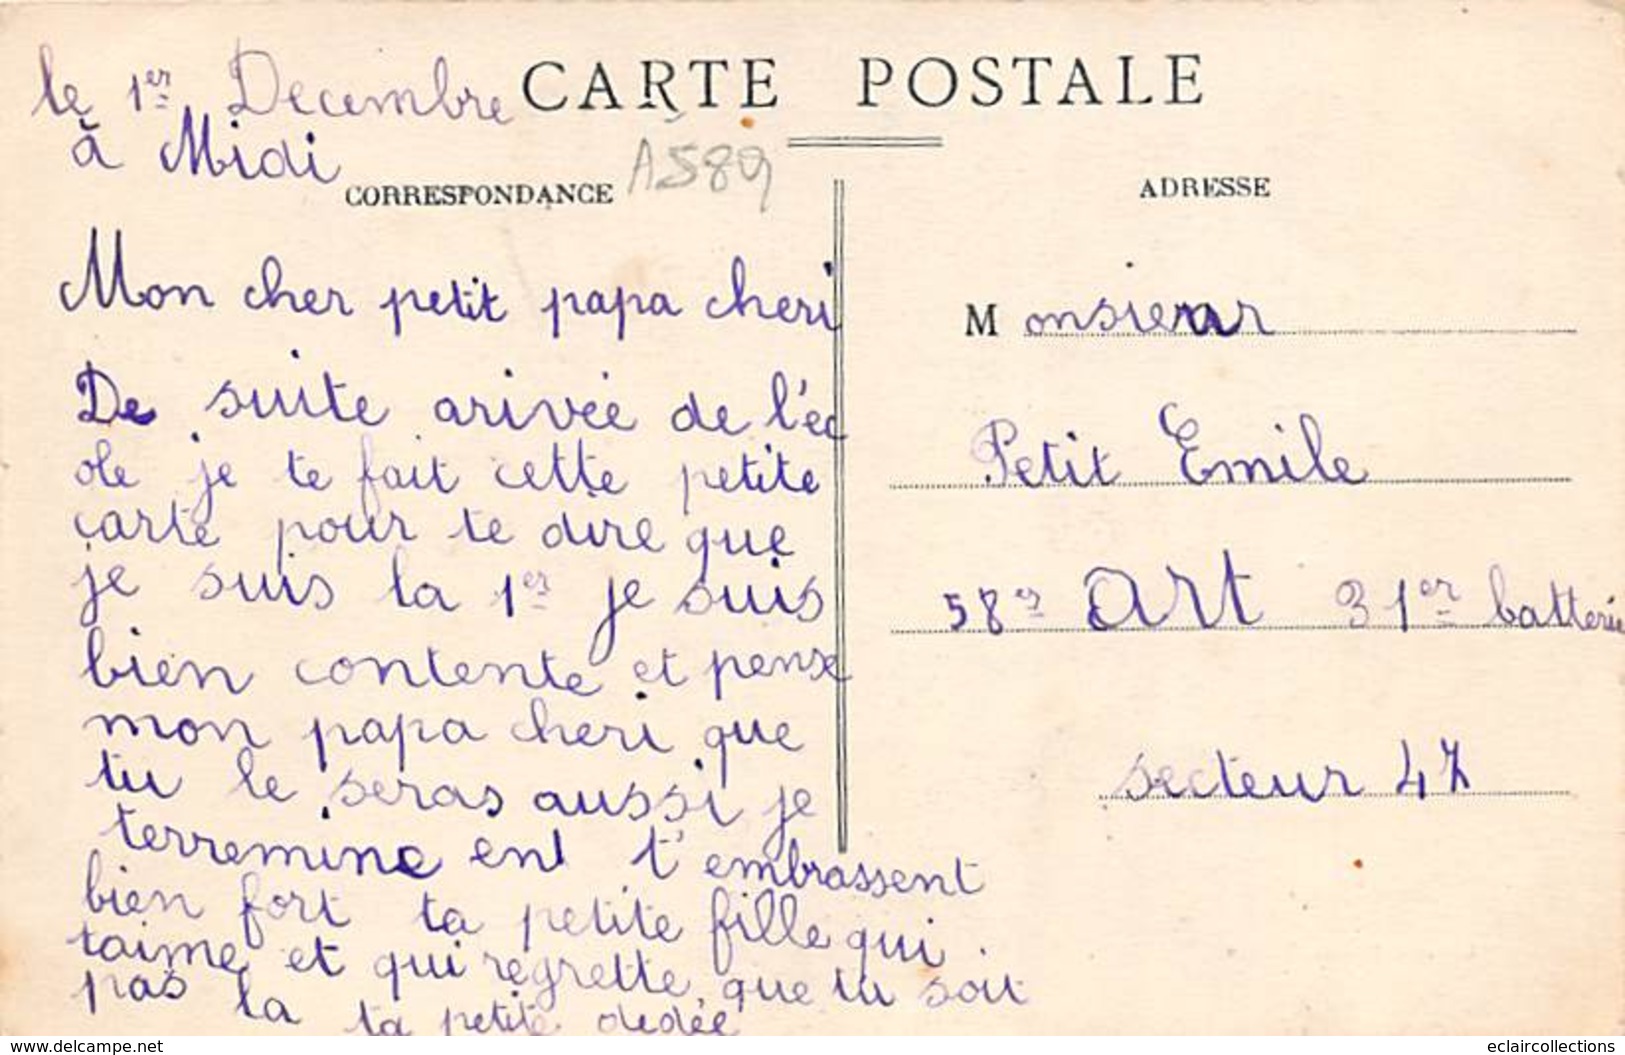 le 1er Decembre
CARTE POSTALE
à Midi
A589
CORRESPONDANCE
Mon cher petit papa cheri
De suite arivée de l'éc
ole je te fait cette petite
carte pour te dire que
je suis la 1er je suis
bien contente et pense
mon papa cheri que
tu le seras aussi je
terremine ent t'embrassent
bien fort ta petite fille qui
taime et qui regrette que tu soit
pas la ta petite dedée
ADRESSE
Monsieur
Petit Emile
58er Art 31er batterie
secteur 47
www.delcampe.net
eclaircollections